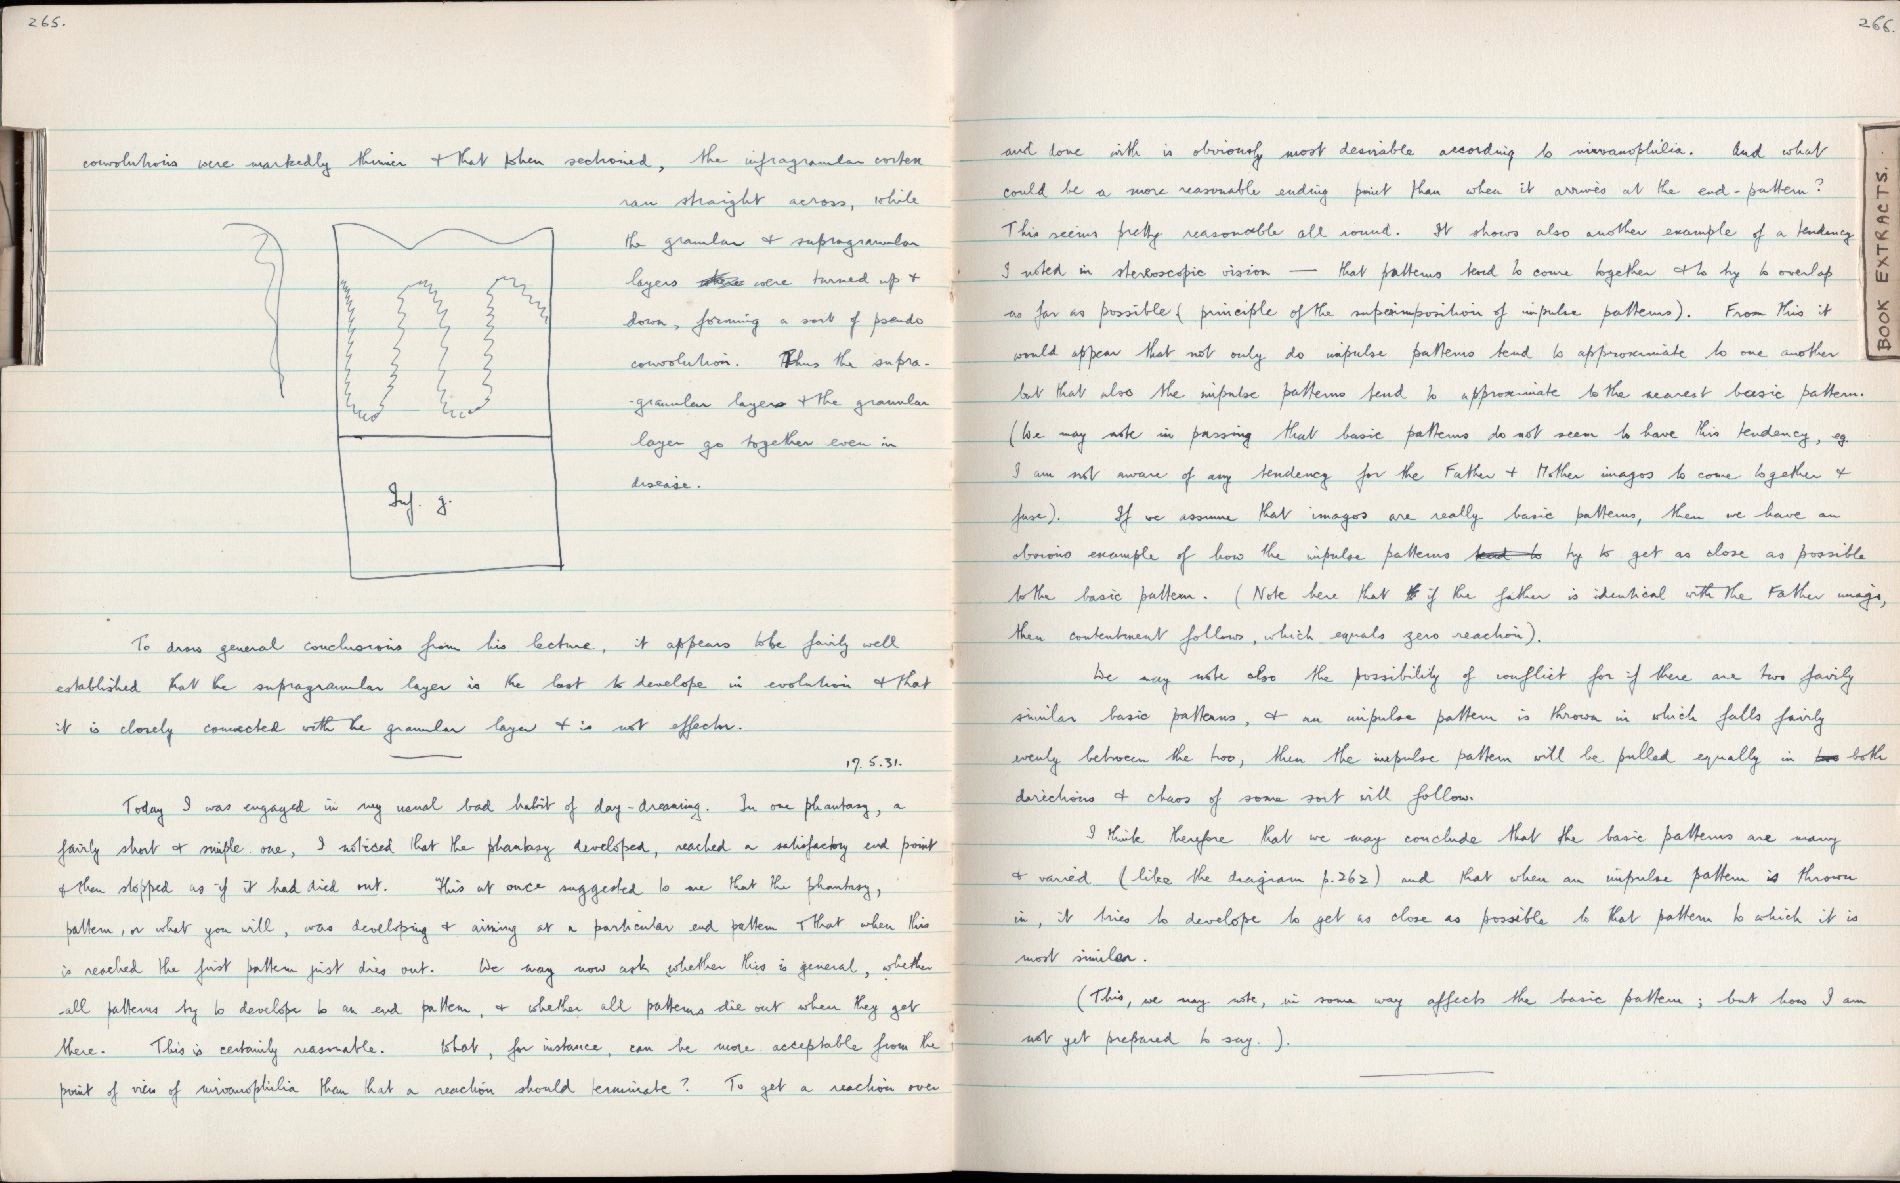 265.
convolutions were markedly thinner & that when sectioned, the infragranular cortex
ran straight across, while
the granular & supragranular
layers were turned up &
down, forming a sort of pseudo
convolution. Thus the supra-
-granular layers & the granular
layer go together even in
disease.
Inf. g.
To draw general conclusions from his lecture, it appears to be fairly well
established that the supragranular layer is the last to develope in evolution & that
it is closely connected with the granular layer & is not effector.
17.5.31.
Today I was engaged in my usual bad habit of day-dreaming. In one phantasy, a
fairly short & simple one, I noticed that the phantasy developed, reached a satisfactory end point
& then stopped as if it had died out. This at once suggested to me that the phantasy,
pattern, or what you will, was developing & aiming at a particular end pattern & that when this
is reached the first pattern just dies out. We may now ask whether this is general, whether
all patterns try to develope to an end pattern, & whether all patterns die out when they get
there. This is certainly reasonable. What, for instance, can be more acceptable from the
point of view of nirvanophilia than that a reaction should terminate? To get a reaction over
266.
and done with is obviously most desirable according to nirvanophilia. And what
could be a more reasonable ending point than when it arrives at the end-pattern?
This seems pretty reasonable all round. It shows also another example of a tendency
I noted in stereoscopic vision — that patterns tend to come together & to try to overlap
as far as possible (principle of the superimposition of impulse patterns). From this it
would appear that not only do impulse patterns tend to approximate to one another
but that also the impulse patterns tend to approximate to the nearest basic pattern.
(We may note in passing that basic patterns do not seem to have this tendency, eg.
I am not aware of any tendency for the Father & Mother imagos to come together &
fuse). If we assume that imagos are really basic patterns, then we have an
obvious example of how the impulse patterns tend to try to get as close as possible
to the basic pattern. (Note here that if the father is identical with the Father imago,
then contentment follows, which equals zero reaction).
We may note also the possibility of conflict for if there are two fairly
similar basic patterns, & an impulse pattern is thrown in which falls fairly
evenly between the two, then the impulse pattern will be pulled equally in two both
directions & chaos of some sort will follow.
I think therefore that we may conclude that the basic patterns are many
& varied (like the diagram p.262) and that when an impulse pattern is thrown
in, it tries to develope to get as close as possible to that pattern to which it is
most similar.
(This, we may note, in some way affects the basic pattern; but how I am
not yet prepared to say.).
BOOK EXTRACTS.